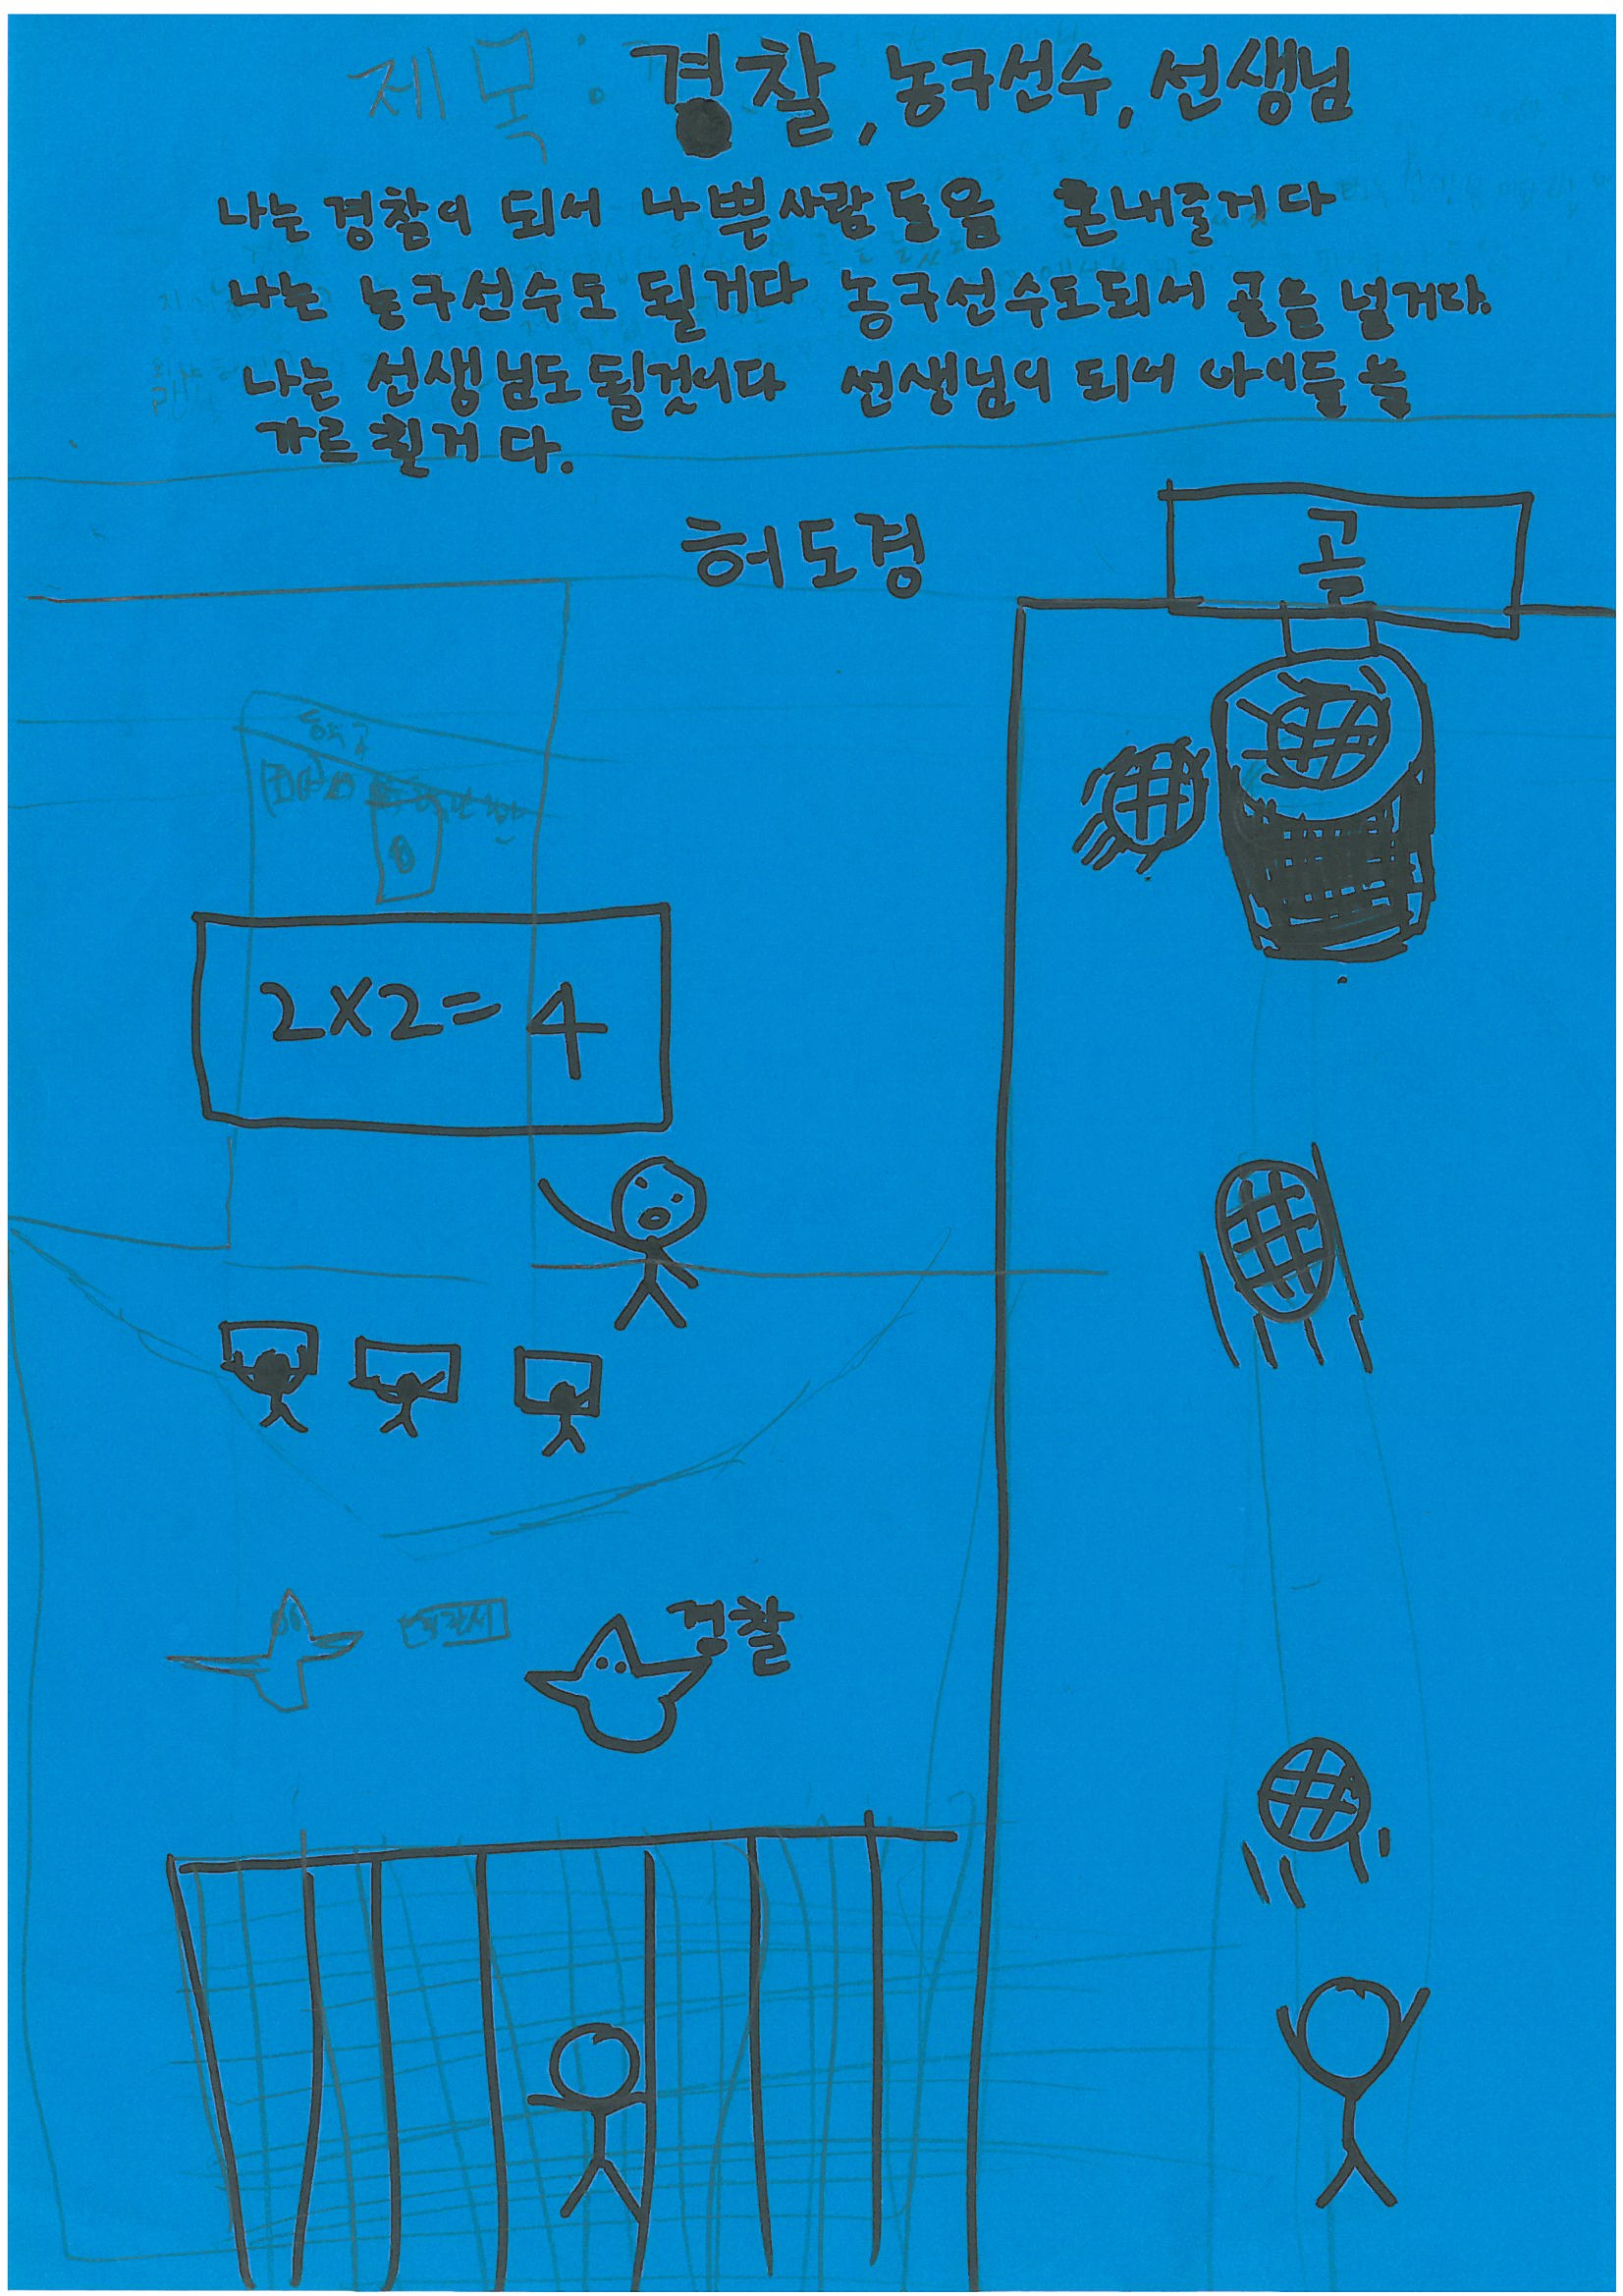 제목: 경찰, 농구선수, 선생님
나는 경찰이 되서 나쁜사람들을 혼내줄거다
나는 농구선수도 될거다 농구선수도되서 골을 널거다.
나는 선생님도될것이다 선생님이 되어 아이들을
가르칠거다.
허도경
골
2×2=4
경찰